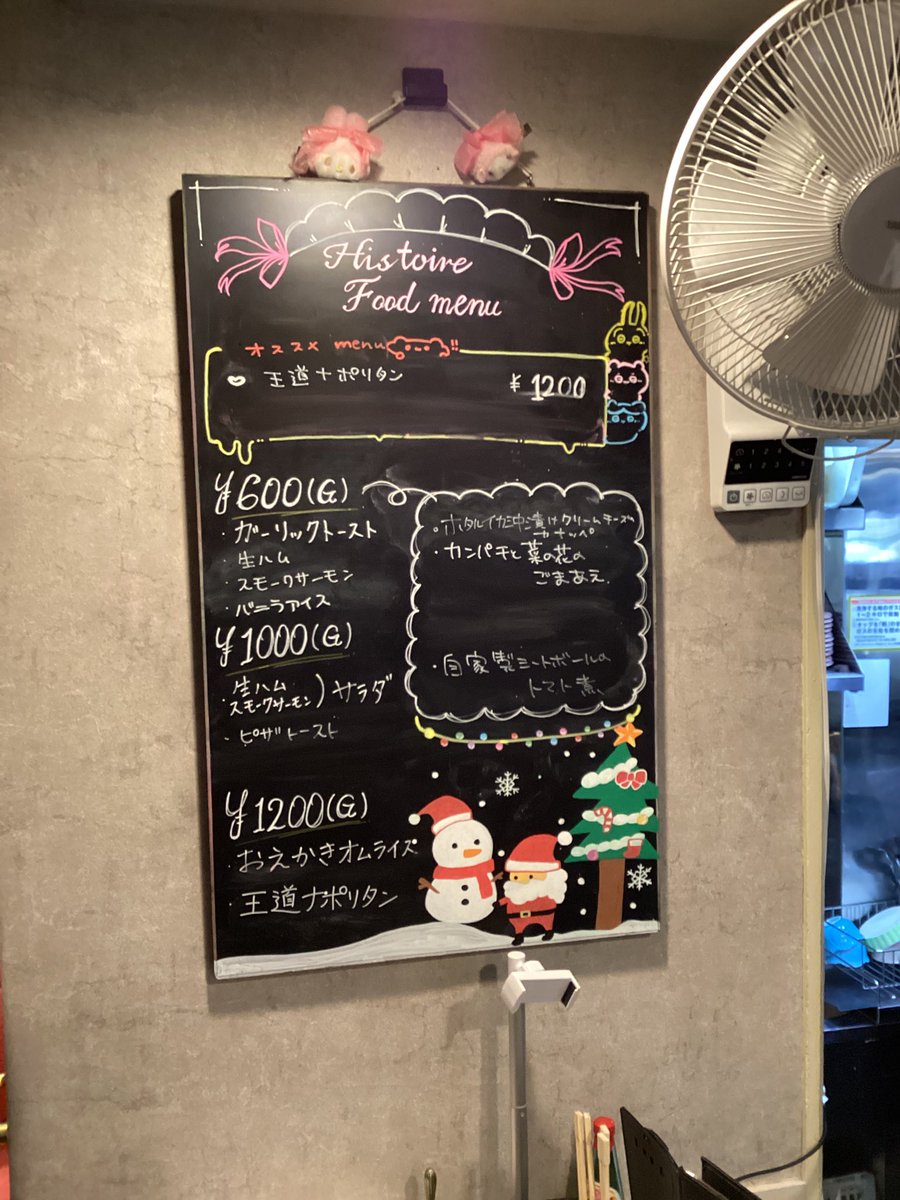 Histoire
Food menu
オススメ menu !!
王道ナポリタン ¥1200
¥600(G)
・ガーリックトースト
・生ハム
・スモークサーモン
・バニラアイス
・ホタルイカ沖漬けクリームチーズ
カナッペ
・カンパチと菜の花の
ごまあえ.
・自家製ミートボールの
トマト煮
¥1000(G)
・生ハム
スモークサーモン)サラダ
・ピザトースト
¥1200(G)
・おえかきオムライス
・王道ナポリタン